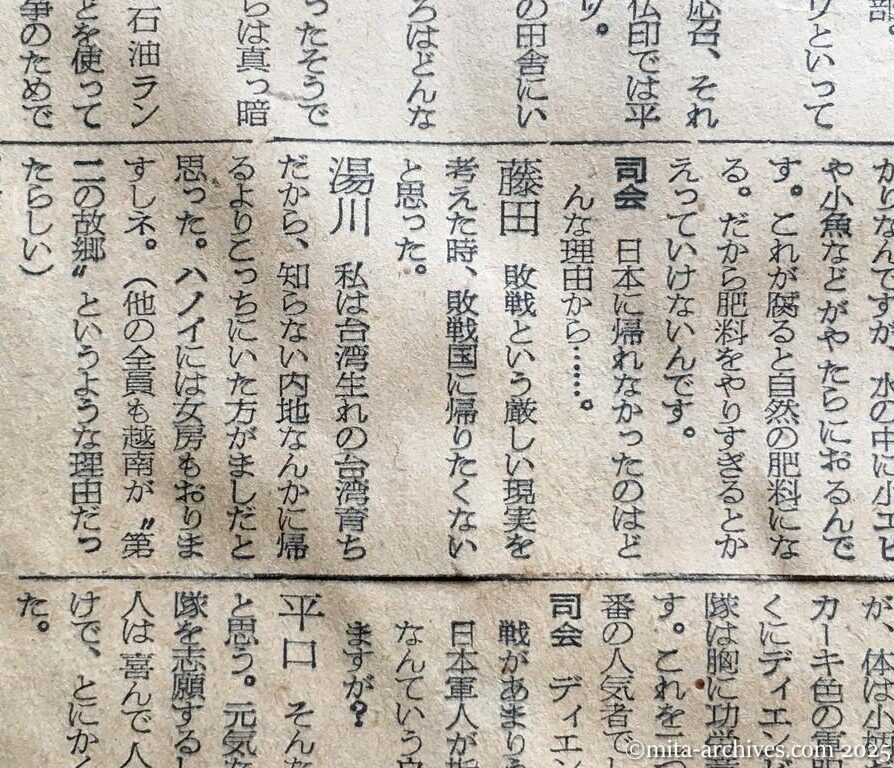 部。
リといって
応召、それ
仏印では平
り。
の田舎にい
ろはどんな
ったそうで
らは真っ暗
石油ラン
とを使って
争のためで
かりなんですが、水の中に小エビ
や小魚などがやたらにおるんで
す。これが腐ると自然の肥料にな
る。だから肥料をやりすぎるとか
えっていけないんです。
司会 日本に帰れなかったのはど
んな理由から……。
藤田 敗戦という厳しい現実を
考えた時、敗戦国に帰りたくない
と思った。
湯川 私は台湾生れの台湾育ち
だから、知らない内地なんかに帰
るよりこっちにいた方がましだと
思った。ハノイには女房もおりま
すしネ。(他の全員も越南が〝第
二の故郷〟というような理由だっ
たらしい)
が、体は小柄
カーキ色の軍服
くにディエン
隊は胸に功労
す。これを二つ
番の人気者でし
司会 ディエン
戦があまり
日本軍人が指
なんていう
ますが?
平口 そんな
と思う。元気な
隊を志願するし
人は喜んで人
けで、とにかく
た。
©mita-archives.com 2025